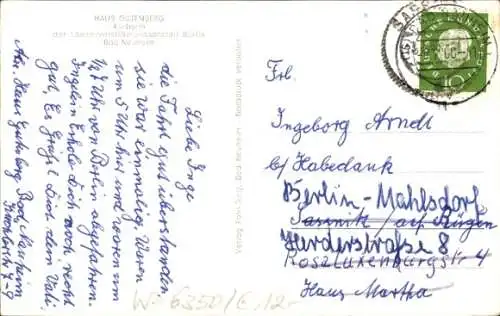 HAUS GUTENBERG
Kurheim
der Landesversicherungsanstalt Berlin
Bad Nauheim
Liebe Inge
die Fahrt gut überstanden
sie war einmalig. Waren
um 5 Uhr hier und waren um
1/2 7 Uhr von Berlin abgefahren.
Erhole dich noch recht
gut, Es Grüßt Dich dein Vati.
Abs. Haus Gutenberg Bad Nauheim
7-9
Nachdruck verboten
Bad Nauheim
Verlag
10
Frl.
Ingeborg Arndt
b/ Habedank
Berlin-Mahlsdorf
Sassnitz auf Rügen
Herderstraße 8
Rosa Luxemburgstr 4
Haus Martha
W-6350/E 12-